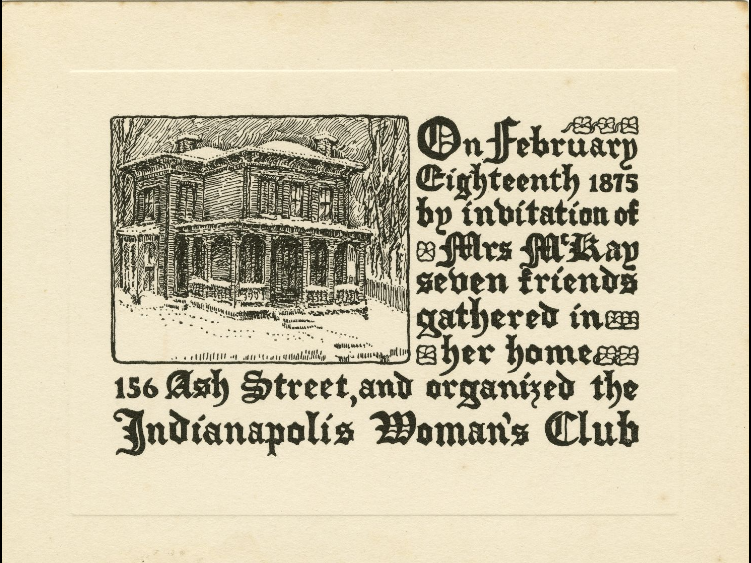 On February
Eighteenth 1875
by invitation of
Mrs McKay
seven friends
gathered in
her home
156 Ash Street, and organized the
Indianapolis Woman's Club